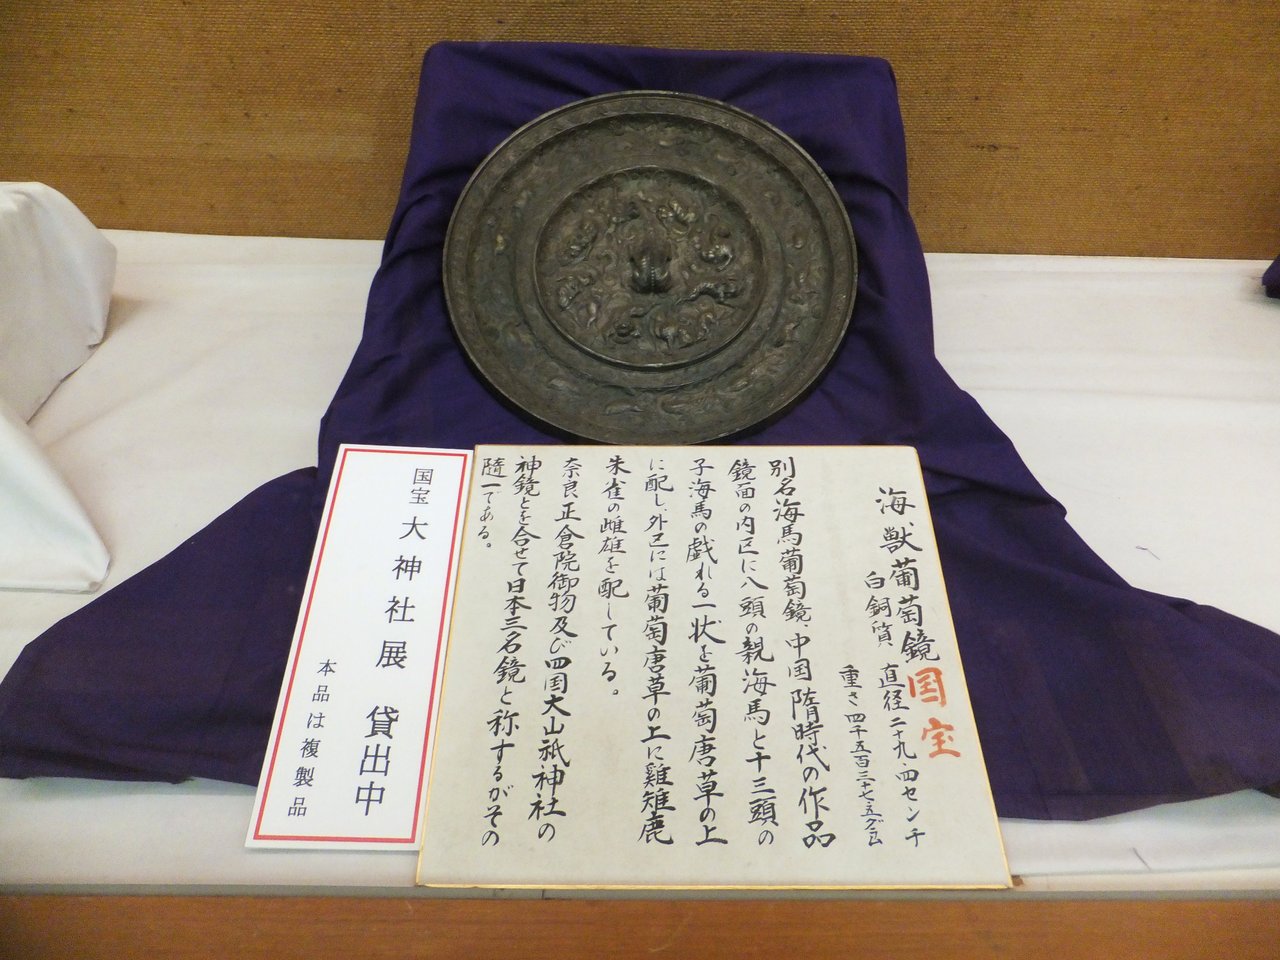 海獣葡萄鏡 国宝
白銅質 直径二十九・四センチ
重さ四千五百三十七・五グラム
別名海馬葡萄鏡、中国隋時代の作品
鏡面の内区に八頭の親海馬と十三頭の
子海馬の戯れる一状を葡萄唐草の上
に配し、外区には葡萄唐草の上に雞雉鹿
朱雀の雌雄を配している。
奈良、正倉院御物及び四国大山祇神社の
神鏡とを合せて日本三名鏡と称するがその
随一である。
国宝 大神社展 貸出中
本品は複製品